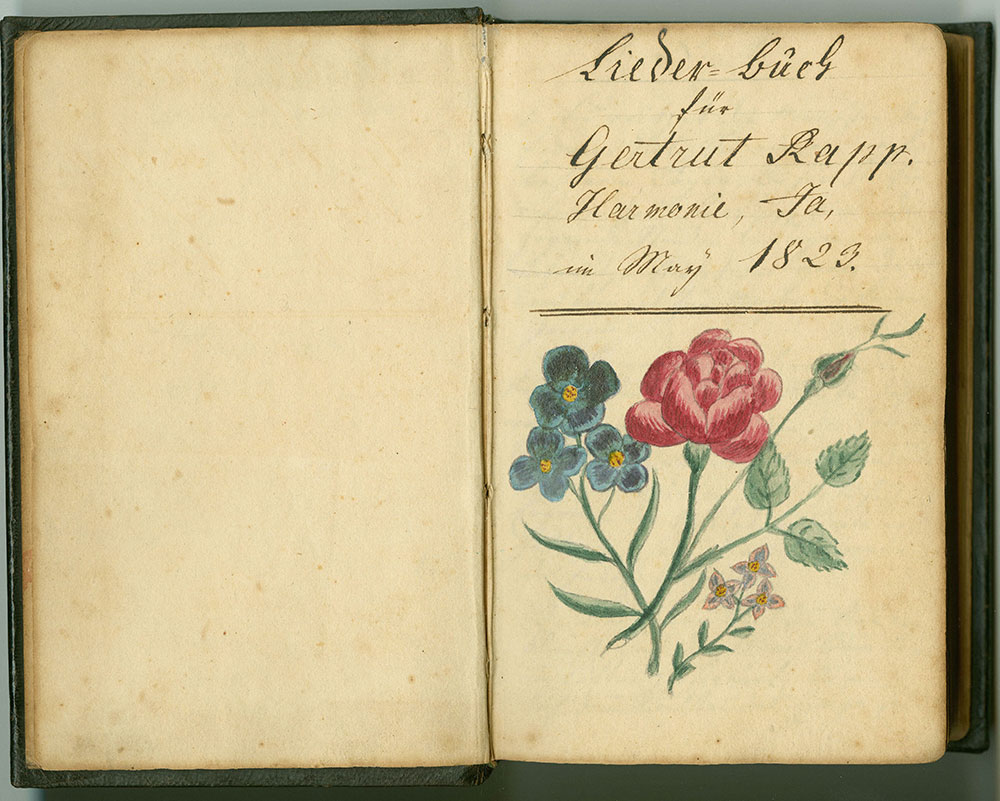 Lieder=bŭch
für
Gertrut Rapp.
Harmonie, Ja,
im Maÿ 1823.